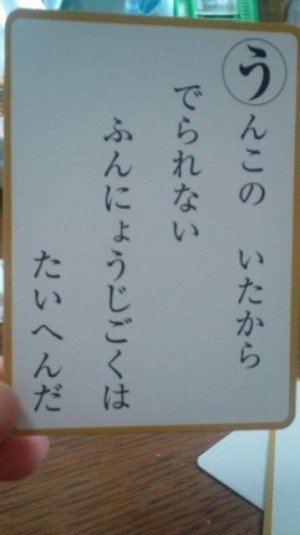 うんこの　いたから
でられない
ふんにょうじごくは
たいへんだ